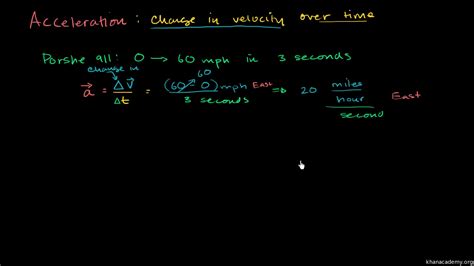 Acceleration: change in velocity over time
Porshe 911: 0 → 60 mph in 3 seconds
change in 60
a⃗ = Δv⃗ / Δt = (60 - 0) mph East / 3 seconds ⇒ 20 miles / hour / second East
khanacademy.org